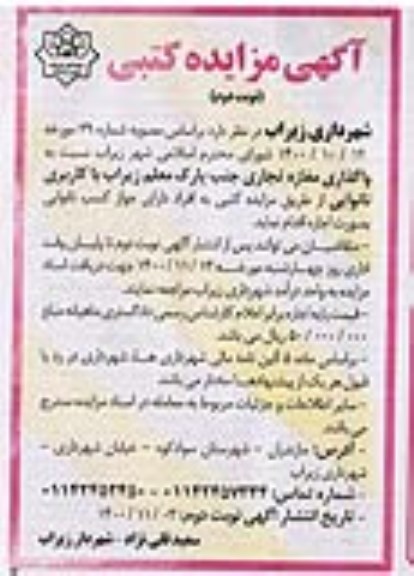 آگهی مزایده کتبی
(نوبت دوم)
شهرداری زیراب در نظر دارد براساس مصوبه شماره ۳۹ مورخه
۱۴۰۰/۱۰/۱۲ شورای محترم اسلامی شهر زیراب نسبت به
واگذاری مغازه تجاری جنب پارک معلم زیراب با کاربری
نانوایی از طریق مزایده کتبی به افراد دارای جواز کسب نانوایی
بصورت اجاره اقدام نماید.
- متقاضیان می توانند پس از انتشار آگهی نوبت دوم تا پایان وقت
اداری روز چهارشنبه مورخه ۱۴۰۰/۱۱/۱۳ جهت دریافت اسناد
مزایده به واحد درآمد شهرداری زیراب مراجعه نمایند.
- قیمت پایه اجاره برابر اعلام کارشناس رسمی دادگستری ماهیانه مبلغ
۵۰/۰۰۰/۰۰۰ ریال می باشد.
- براساس ماده ۵ آئین نامه مالی شهرداری ها، شهرداری در رد یا
قبول هر یک از پیشنهادها مختار می باشد.
- سایر اطلاعات و جزئیات مربوط به معامله در اسناد مزایده مندرج
می باشد.
- آدرس: مازندران - شهرستان سوادکوه - خیابان شهرداری -
شهرداری زیراب
- شماره تماس: ۰۱۱۴۲۴۵۷۳۳۳ - ۰۱۱۴۲۴۵۲۴۵۰
- تاریخ انتشار آگهی نوبت دوم: ۱۴۰۰/۱۱/۰۳
سعید تقی نژاد - شهردار زیراب